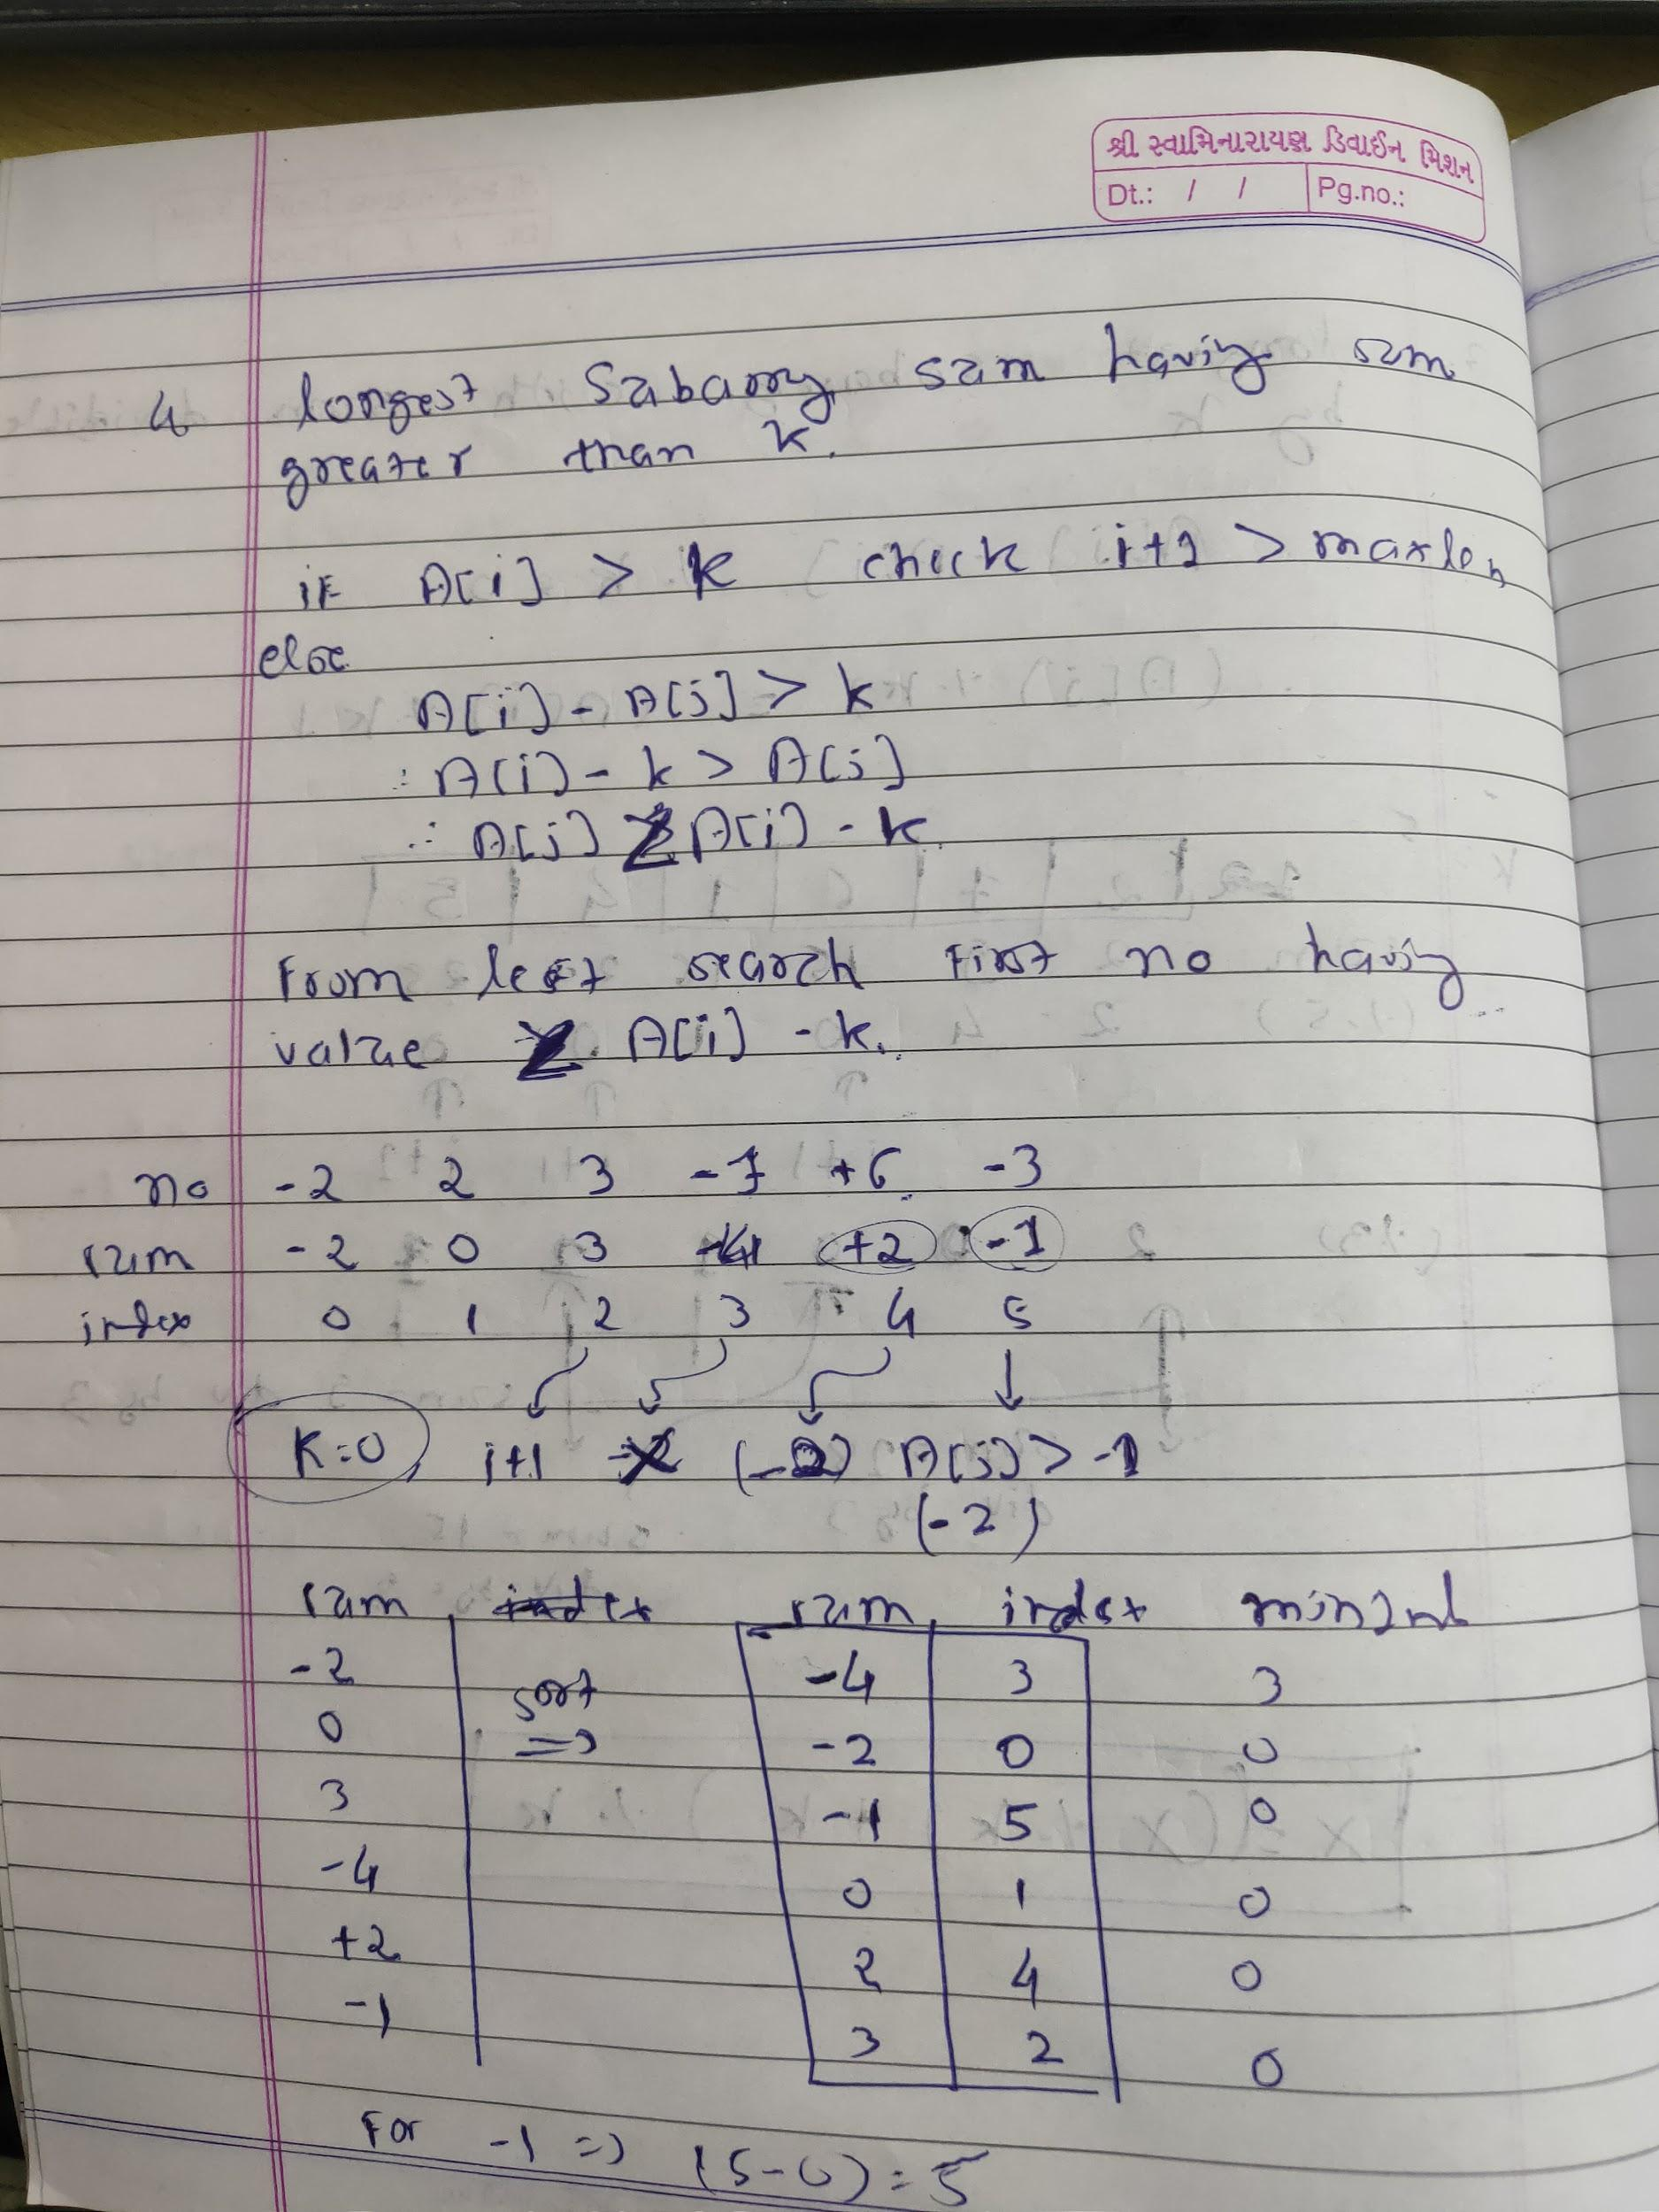 શ્રી સ્વામિનારાયણ ડિવાઈન મિશન
Dt.: / / Pg.no.:
4 longest Sabarry sum having sum
greater than k.
if A[i] > k check i+1 > maxlen
else
A[i] - A[j] > k
∴ A[i] - k > A[j]
∴ A[j] < A[i] - k
From left search first no having
value < A[i] - k.
no -2 2 3 -7 +6 -3
sum -2 0 3 -4 +2 -1
index 0 1 2 3 4 5
K=0, i+1 (-2) A[j] > -1
(-2)
sum index sum index minInd
-2 -4 3 3
0 sort => -2 0 0
3 -1 5 0
-4 0 1 0
+2 2 4 0
-1 3 2 0
For -1 => (5-0) = 5